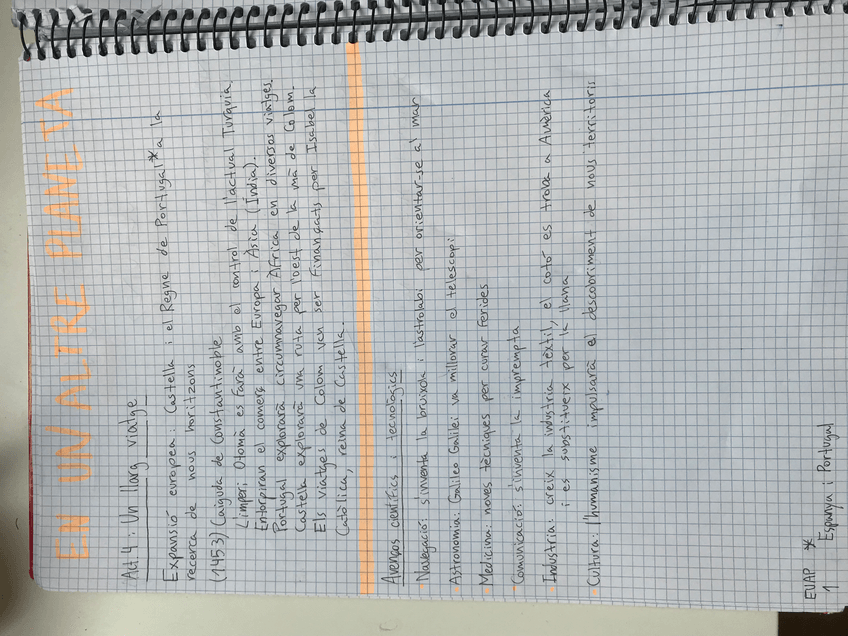 EN UN ALTRE PLANETA
Act.4: Un llarg viatge
Expansió europea: Castella i el Regne de Portugal* a la
recerca de nous horitzons
(1453) Caiguda de Constantinoble
L'imperi Otomà es farà amb el control de l'actual Turquia.
Entorpiran el comerç entre Europa i Àsia (Índia).
Portugal explorarà circumnavegar Àfrica en diversos viatges.
Castella explorarà una ruta per l'oest de la mà de Colom.
Els viatges de Colom van ser finançats per Isabel la
Catòlica, reina de Castella.
Avenços científics i tecnològics
- Navegació: s'inventa la bruixola i l'astrolabi per orientar-se al mar
- Astronomia: Galileo Galilei va millorar el telescopi
- Medicina: noves tècniques per curar ferides
- Comunicació: s'inventa la impremta
- Industria: creix la industria tèxtil, el cotó es troba a Amèrica
i es substitueix per la llana
- Cultura: l'humanisme impulsarà el descobriment de nous territoris
EUAP *
1 Espanya i Portugal